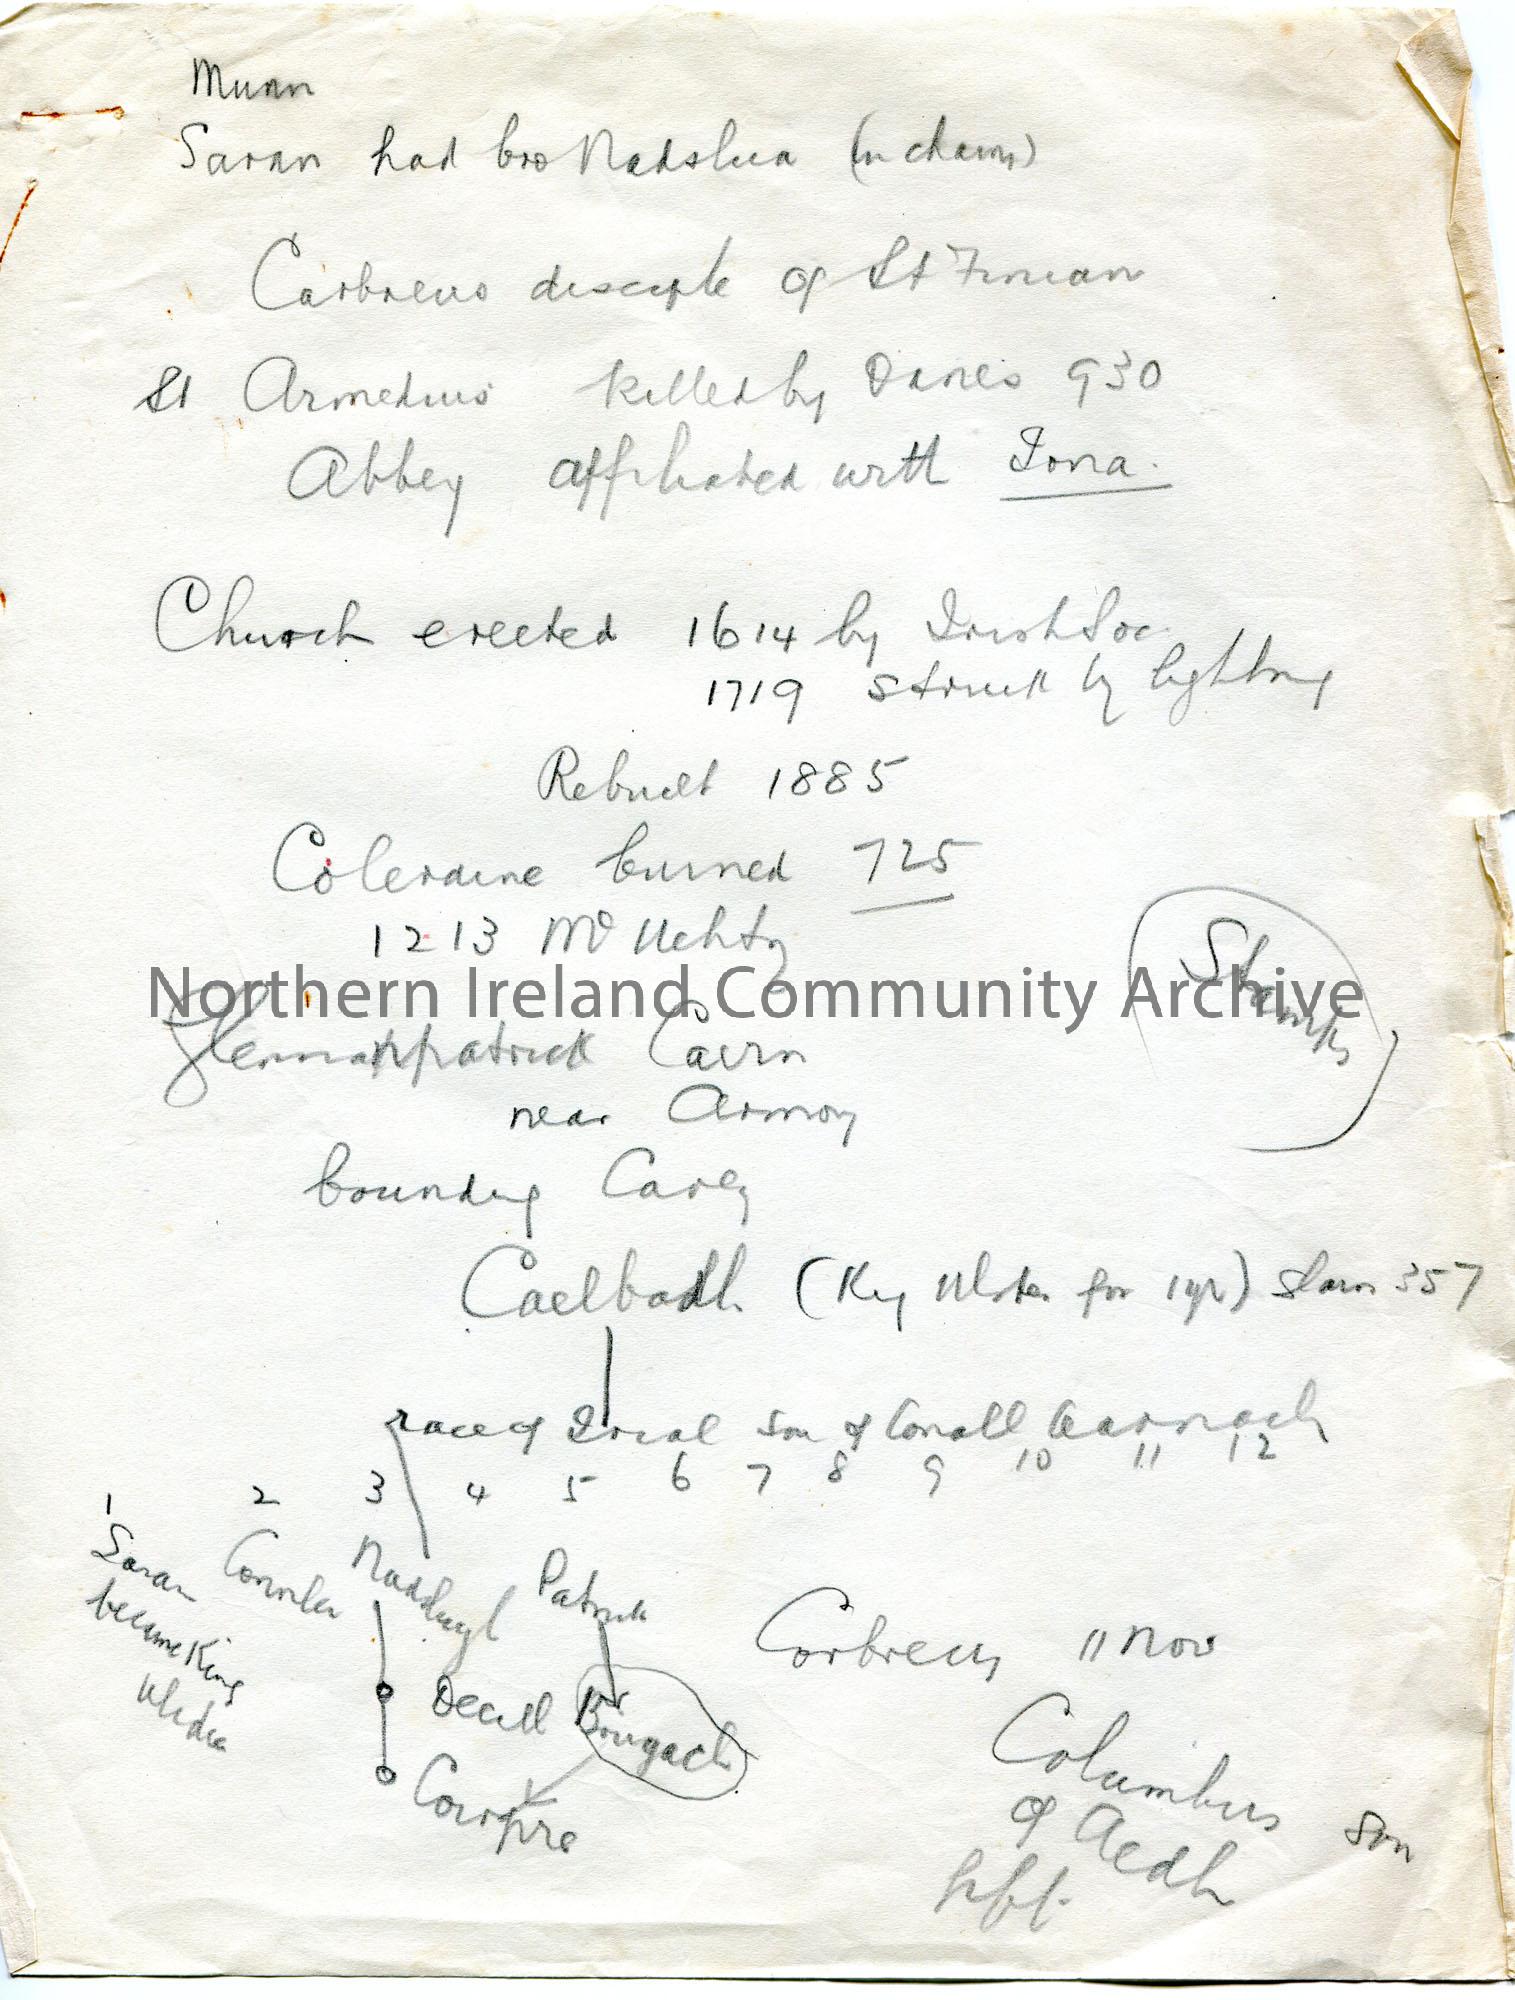 Munn
Saran had bro Nadslua (in chains)
Carbreus disciple of St Finian
St Armedius killed by Danes 930
Abbey affiliated with Iona.
Church erected 1614 by Irish Soc.
1719 struck by lightning
Rebuilt 1885
Coleraine burned 725
1213 Mc Uchtry
Northern Ireland Community Archive
Cairn
near Armoy
bounding Carey
Caelbadh (King Ulster for 1 yr) Slain 357
race of Irial son of Conall Cearnach
1 2 3 4 5 6 7 8 9 10 11 12
Saran became King Ulidia
Connla
Nadsluagh
Patrick
Decill
Bougach
Coirpre
Corbreus 11 Nov
Columbus son
of Aedh